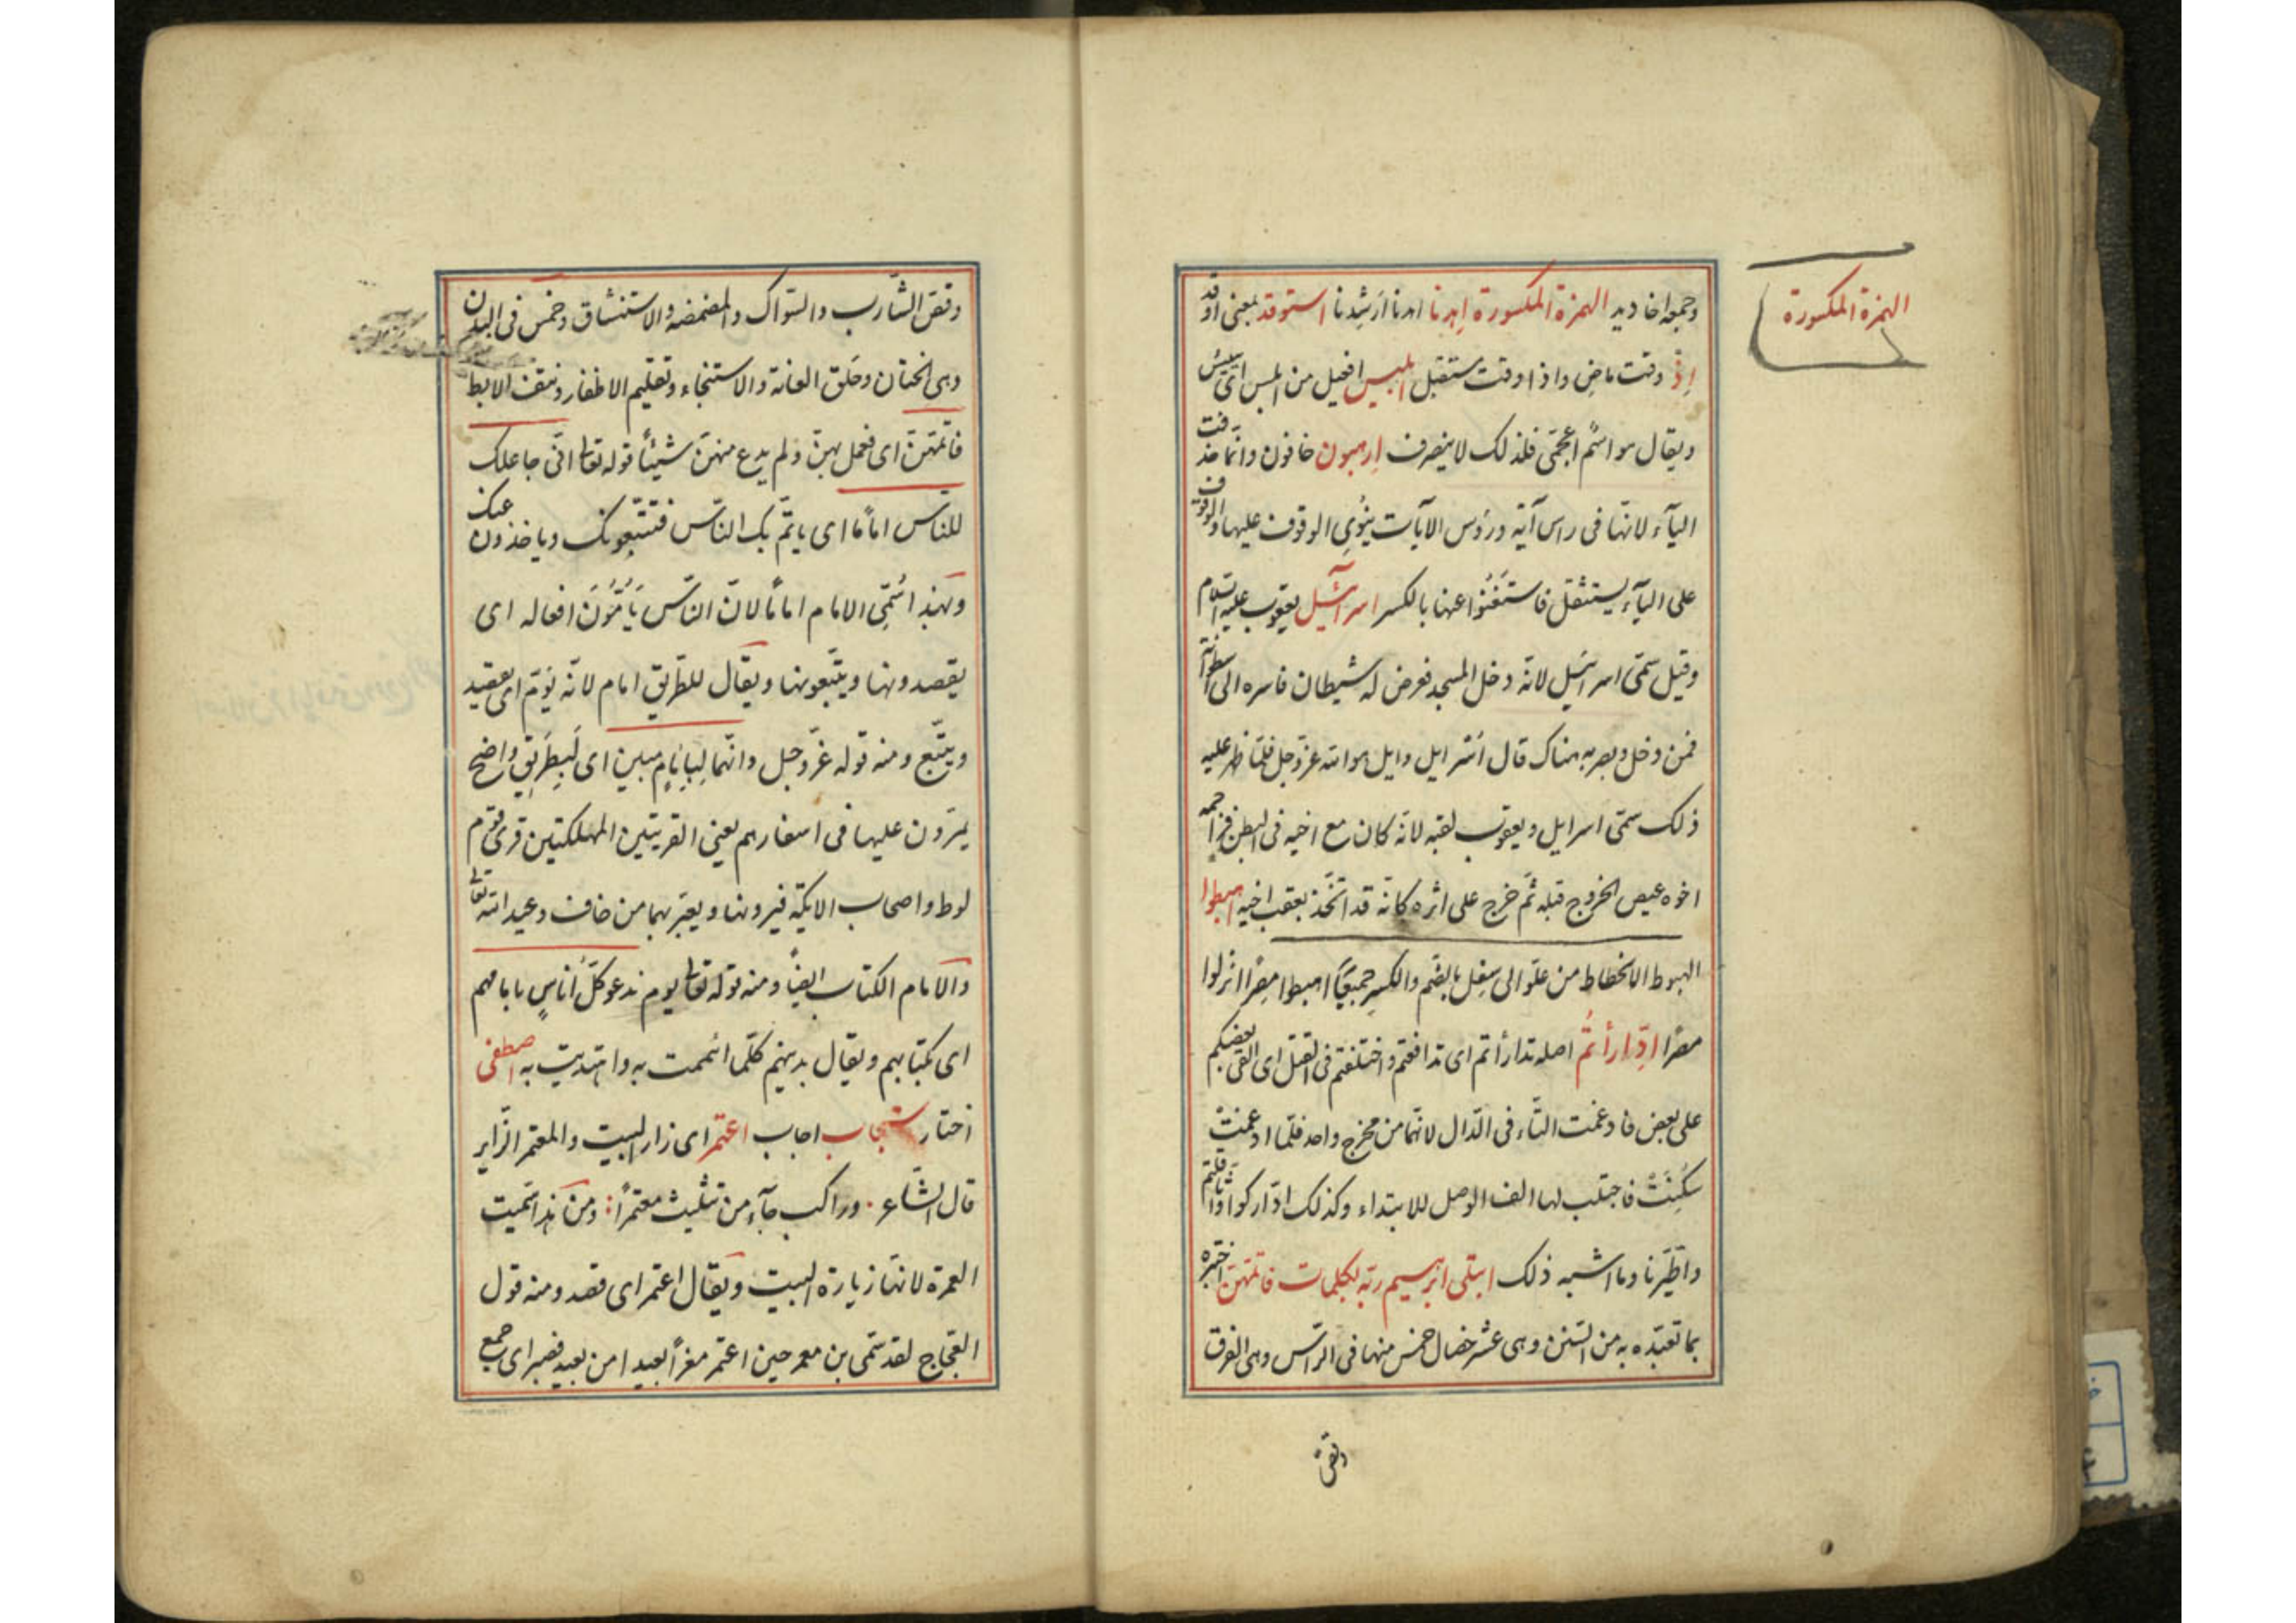 الهمزة المكسورة
وجمعه اخاديد الهمزة المكسورة اِهدنا اهدنا ارشِدنا استوقد بمعنى اوقد
اِذْ وقت ماضٍ واذا وقت مستقبل ابليس افعيل من ابلس اى يئس
ويقال هو اسْم اعجمّى فلذلك لا ينصرف اِرهبون خافون وانّما حذفت
اليآء لانّها فى راس آية ورؤس الآيات ينُوِى الوقوف عليها والوقوف
على اليآء يستثقل فاستَغنُوا عنها بالكسر اسرآئيل يعقوب عليه السّلام
وقيل سمّى اسرائيل لانّه دخل المسجد فعرض له شيطان فاسره الى اسطوانة
فمن دخل وبصر به هناك قال اُسر ايل وايل هو الله عزّ وجل فلمّا ظهر عليه
ذلك سمّى اسرايل ويعقوب لقبه لانّه كان مع اخيه فى البطن فزاحمه
اخوه عيص الخروج قبله ثمّ خرج على اثره كانّه قد اتّخذ بعقب اخيه اهبطوا
الهبوط الانحطاط من علّو الى سِفل بالضّم والكسرِ جميعًا اهبطوا مِصْرًا انزلوا
مصرًا ادّارأتُم اصله تدارأتم اى تدافعتم واختلفتم فى القتل اى القى بعضكم
على بعض فادغمت التّاء فى الدّال لانّهما من مخرج واحد فلمّا ادغمت
سُكِنَتْ فاجتلب لها الف الوصل للابتداء وكذلك ادّاركوا واثّاقلتم
واطّيّرنا وما اشبه ذلك ابتلى ابرهيم ربّه بكلمات فاتمّهنّ اختبره
بما تعبّده به من السّنن وهى عشر خصال خمس منها فى الرّاس وهى الفرق
وقصّ
وقصّ الشّارب والسّواك والمضمضة والاستنشاق وخمس فى البدن
وهى الختان وحَلق العانة والاستنجاء وتقليم الاظفار ونتف الابط
فاتمّهنّ اى فعمل بهنّ ولم يدع منهنّ شيئًا قوله تعالى انّى جاعلك
للنّاس امامًا اى ياتمّ بك النّاس فتتّبعونك وياخذون عنك
وبهذا سُمّى الامام امامًا لانّ النّاس يَأُمُّونَ افعاله اى
يقصدونها ويتّبعونها ويقال للطّريق امام لانّه يؤمّ اى يقصد
ويتّبع ومنه قوله عزّ وجل وانّهما لَبِاِمَامٍ مبين اى لَبِطَرِيقٍ واضح
يمرّون عليها فى اسفارهم يعنى القريتين المهلكتين قرى قوم
لوط واصحاب الايكة فيرونها ويعتبر بهما من خاف وعيد الله تعالى
والامام الكتاب ايضًا ومنه قوله تعالى يوم ندعو كلّ اُناسٍ بامامهم
اى بكتابهم ويقال بدينهم كلّما ائتممت به واهتديت به اصطفى
اختار استجاب اجاب اعتمر اى زار البيت والمعتمر الزّاير
قال الشّاعر وراكب جآء من تثليث معتمرًا ومن هذا سمّيت
العمرة لانّها زيارة البيت ويقال اعتمر اى قصد ومنه قول
العجّاج لقد سمّى بن معمر حين اعتمر مغزًا بعيدا من بعيد فصبر اى جمع